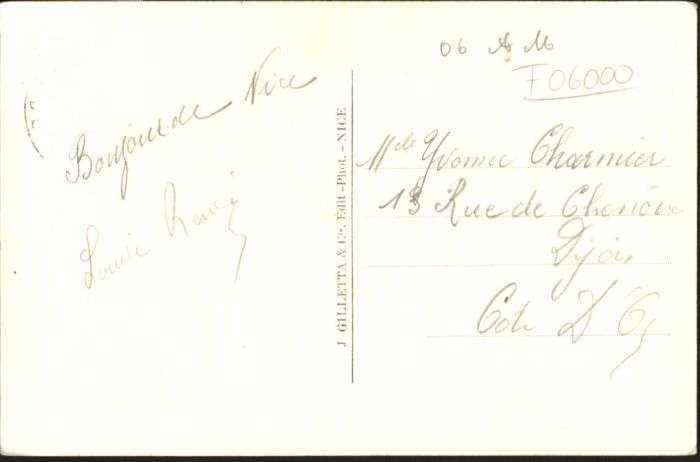 06 A M
F06000
Bonjour de Nice
Louise René
J GILLETTA & Cie, Edit-Phot. - NICE
Melle Yvonne Charmier
13 Rue de Chenôve
Dijon
Cote D'Or